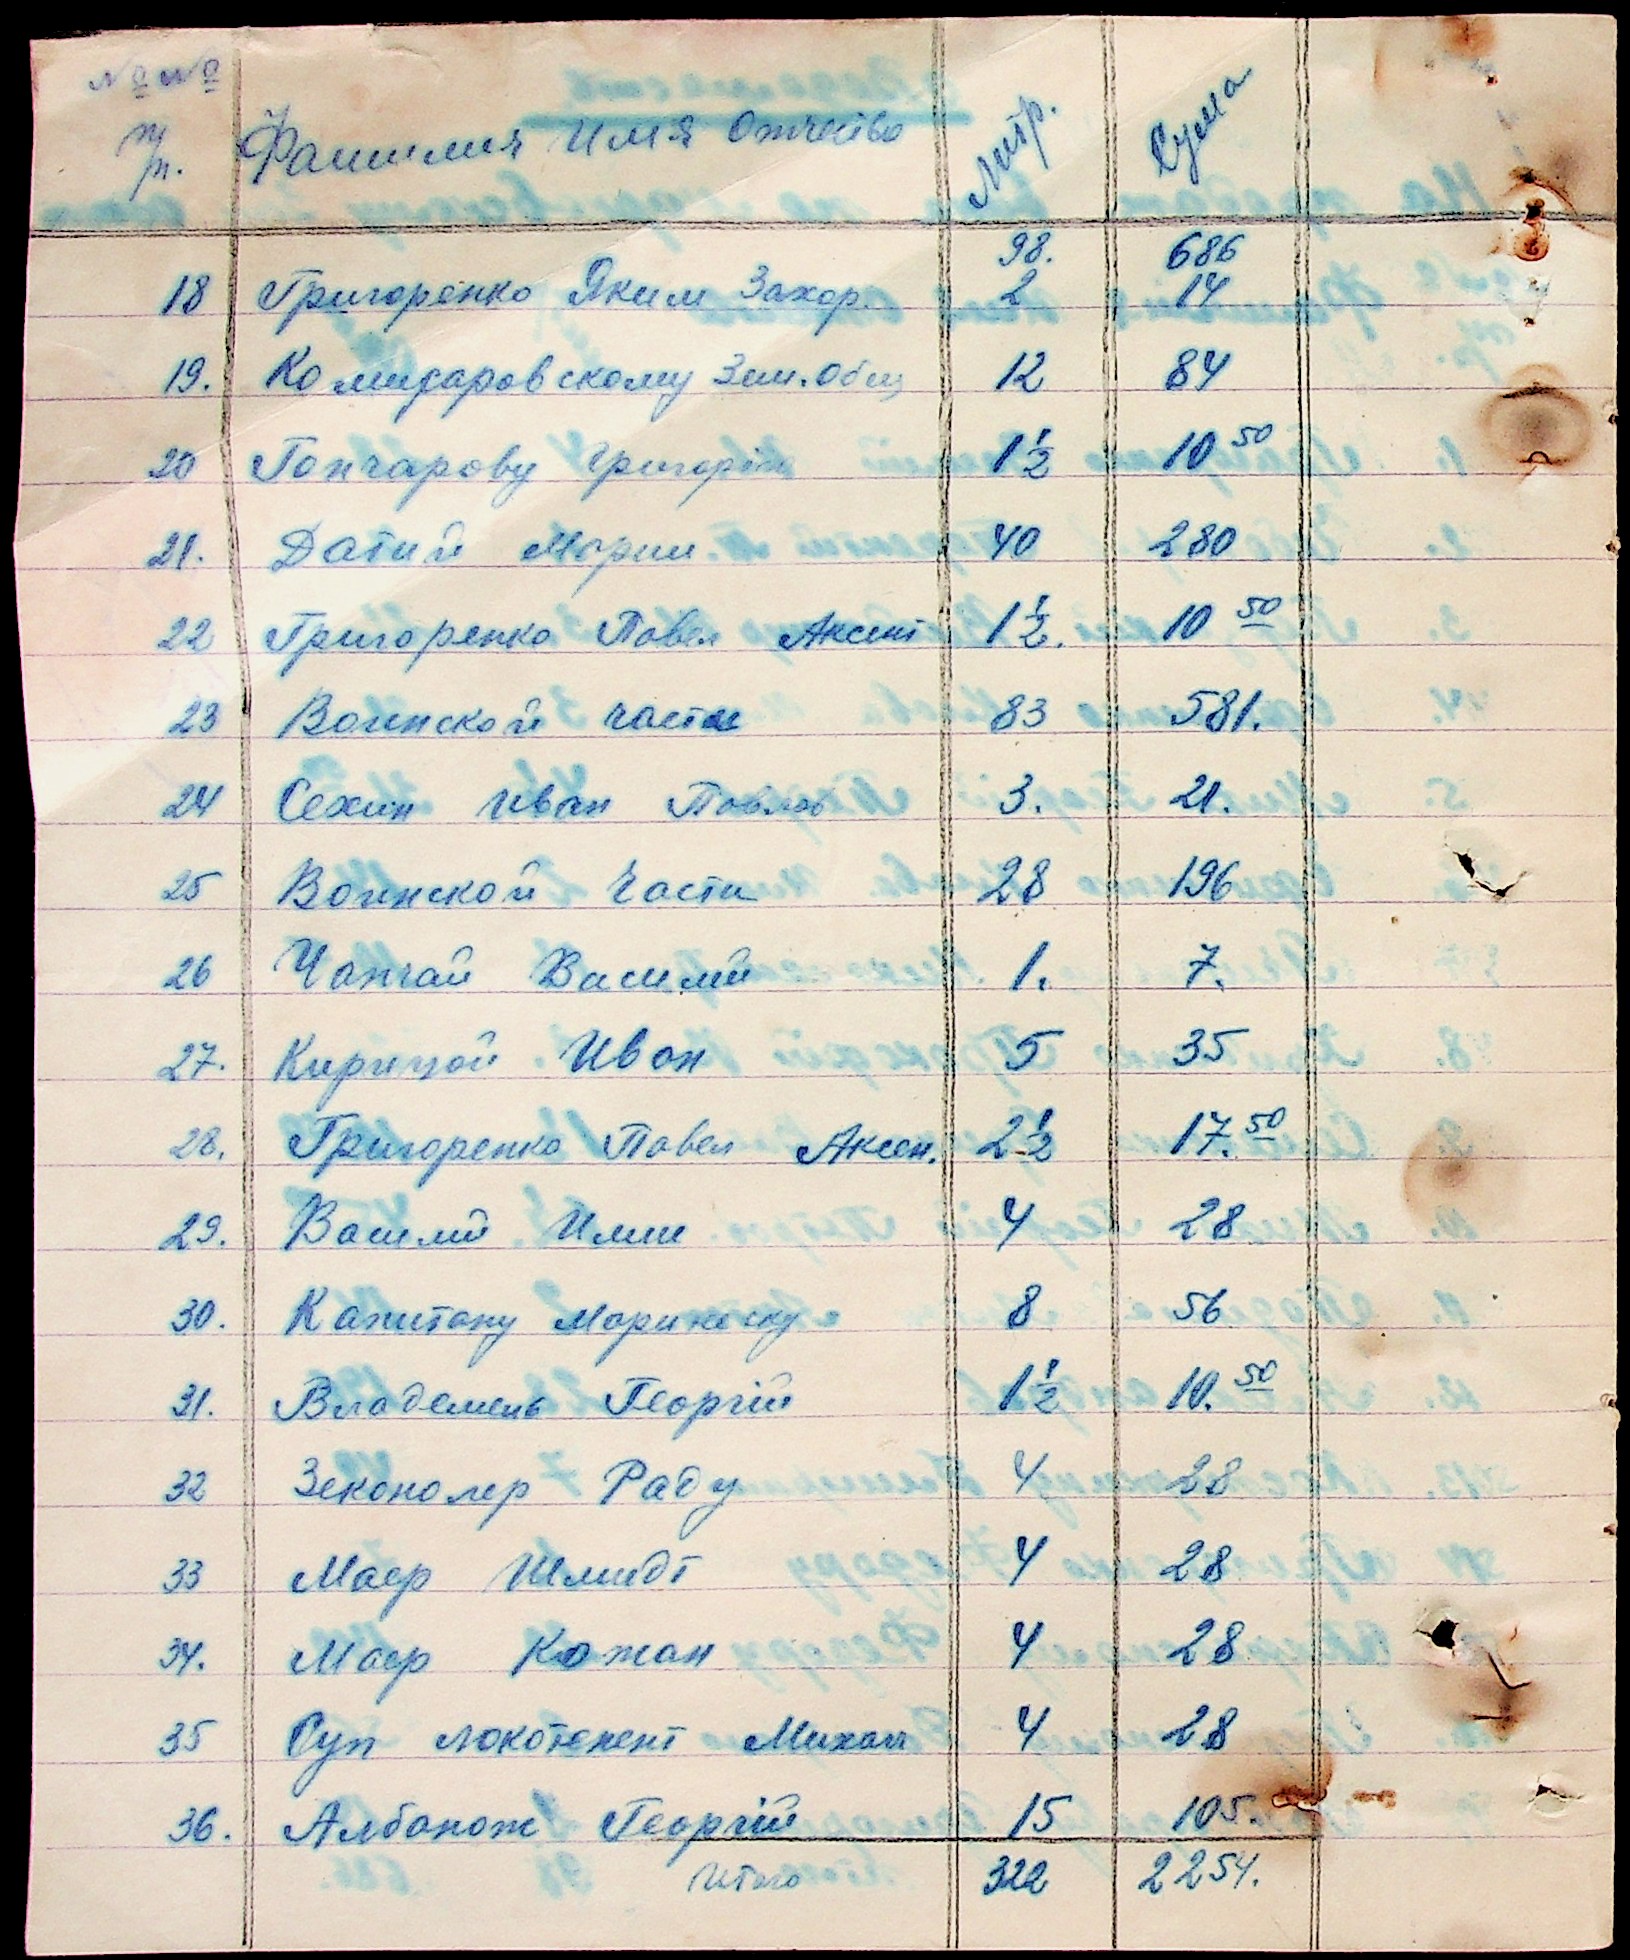 № № Фамилия Имя Отчество Литр. Сума
п/п.
98. 686
18 Григоренко Яким Захар. 2 14
19. Комисаровскому Зем. Общ 12 84
20 Гончарову Григорію 1 1/2 10 50
21. Датий Марии 40 280
22 Григоренко Павел Аксент 1 1/2. 10 50
23 Воинской части 83 581.
24 Сехин Иван Павлов 3. 21.
25 Воинской Части 28 196
26 Чапчай Василий 1. 7.
27. Кирицой Иван 5 35
28. Григоренко Павел Аксен. 2 1/2 17. 50
29. Василий Илии 4 28
30. Капитану Маринеску 8 56
31. Владемень Георгій 1 1/2 10. 50
32 Зекономер Раду 4 28
33 Маер Шмидт 4 28
34. Маер Кожан 4 28
35 Суп локотенент Михаил 4 28
36. Албанож Георгій 15 105.
Итого 322 2254.